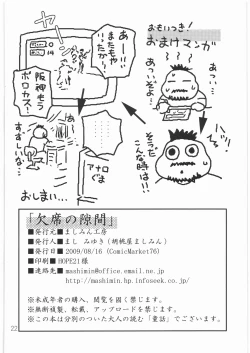 おもいつき!
おまけマンガ
あつい…
あついぞよ…
ハッ!
そうだ
こんな時は!!
あー!!
またもや
いたかー!
阪神もう
ボロカス!
すずしいな…
アナロ
ぐま
おしまい…
「欠席の隙間」
■発行元■ましみん工房
■発行人■まし みゆき(胡桃屋ましみん)
■発行日■2009/08/16(ComicMarket76)
■印刷■HOPE21様
■連絡先■mashimin@office.email.ne.jp
http://mashimin.hp.infoseek.co.jp/
※未成年者の購入、閲覧を固く禁じます。
※無断複製、転載、アップロードを禁じます。
※この本は分別のついた大人の読む「童話」でございます。
22